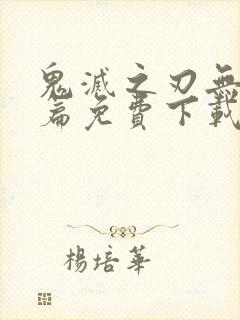 鬼滅之刃無
篇免費下載
楊培華